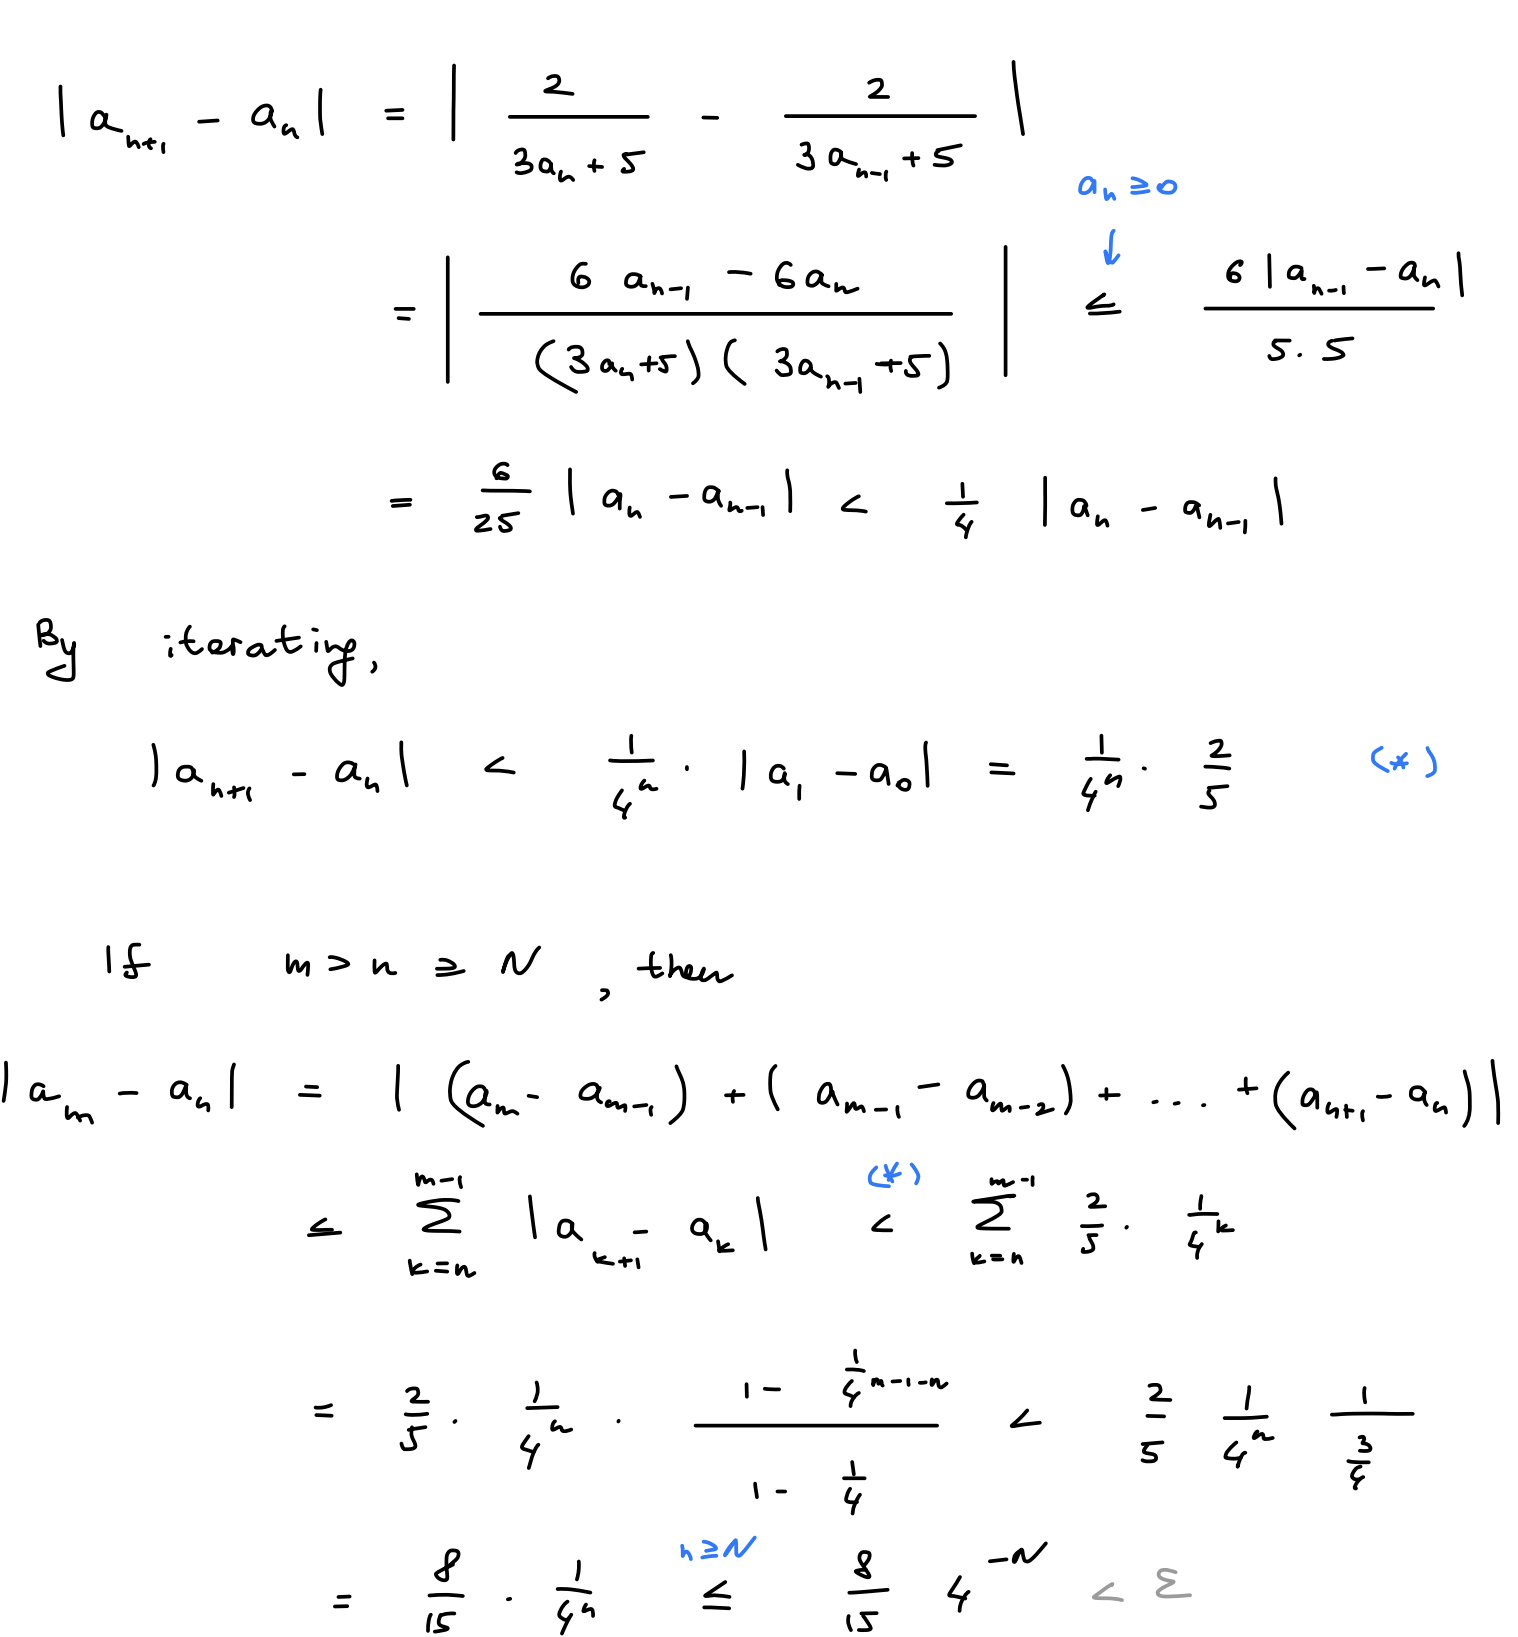 |a_{n+1} - a_n| = | \frac{2}{3a_n + 5} - \frac{2}{3a_{n-1} + 5} |
a_n ≥ 0
↓
= | \frac{6 a_{n-1} - 6a_n}{(3a_n+5)(3a_{n-1}+5)} | ≤ \frac{6 |a_{n-1} - a_n|}{5 \cdot 5}
= \frac{6}{25} |a_n - a_{n-1}| < \frac{1}{4} |a_n - a_{n-1}|
By iterating,
|a_{n+1} - a_n| < \frac{1}{4^n} \cdot |a_1 - a_0| = \frac{1}{4^n} \cdot \frac{2}{5} (*)
If m > n ≥ N, then
|a_m - a_n| = |(a_m - a_{m-1}) + (a_{m-1} - a_{m-2}) + ... + (a_{n+1} - a_n)|
≤ \sum_{k=n}^{m-1} |a_{k+1} - a_k| \overset{(*)}{<} \sum_{k=n}^{m-1} \frac{2}{5} \cdot \frac{1}{4^k}
= \frac{2}{5} \cdot \frac{1}{4^n} \cdot \frac{1 - \frac{1}{4}^{m-1-n}}{1 - \frac{1}{4}} < \frac{2}{5} \frac{1}{4^n} \frac{1}{\frac{3}{4}}
= \frac{8}{15} \cdot \frac{1}{4^n} \overset{n≥N}{≤} \frac{8}{15} 4^{-N} < ε